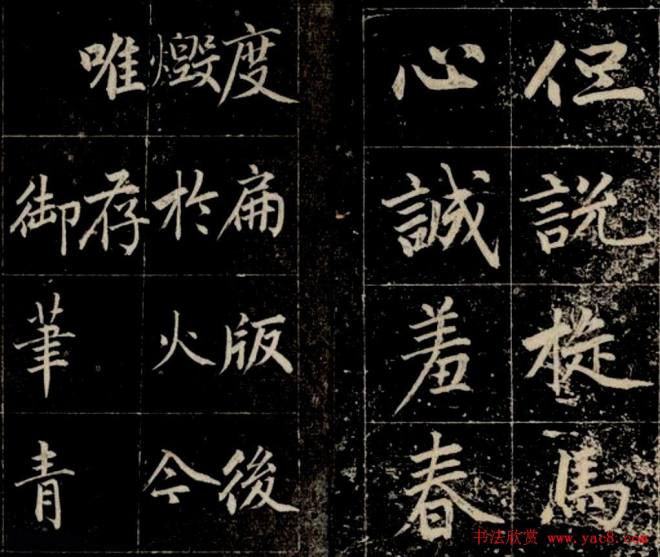 但說旋馬
心誠羞春
度扁版後
燬於火今
唯存
御筆青
书法欣赏 www.yac8.com